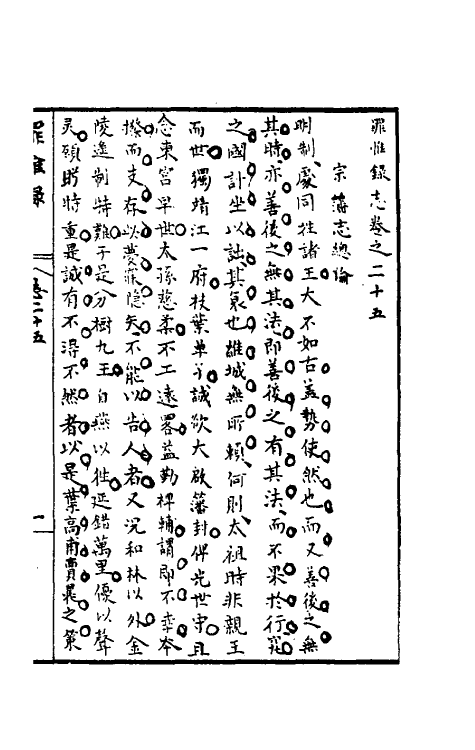 罪惟錄志卷之二十五
宗藩志總論
明制豢同姓諸王大不如古葢勢使然也而又善後之無
其時亦善後之無其法即善後之有其法而不果於行究
之國計坐以詘其衰也雄城無所賴何則太祖時非親王
而世獨靖江一府枝葉單子誠欲大啟藩封俾光世守且
念東宮早世太孫慈柔不工遠畧益勤椑輔謂即不幸本
撥而支存以夢寐隱矣不能以告人者又況和林以外金
陵遙制特難于是分樹九王自燕以徃延錯萬里優以聲
灵頤盻特重是誠有不得不然者以是葉高甫賈晁之策
罪惟錄
卷二十五
一